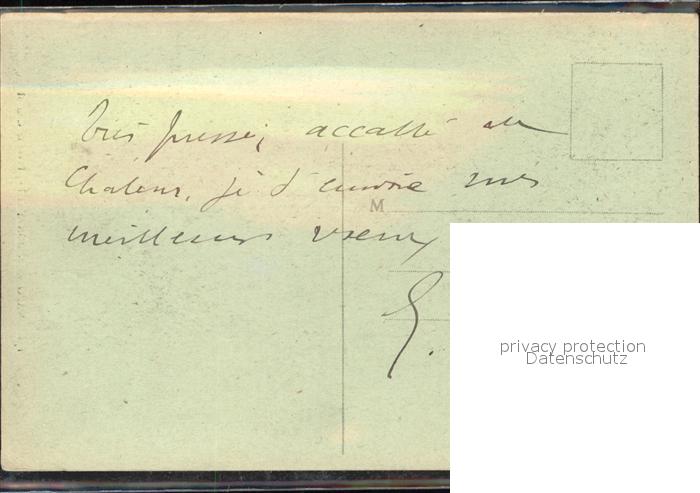 Très pressé, accablé de
Chaleur, je t'envoie mes
M
meilleurs vœux
privacy protection
Datenschutz